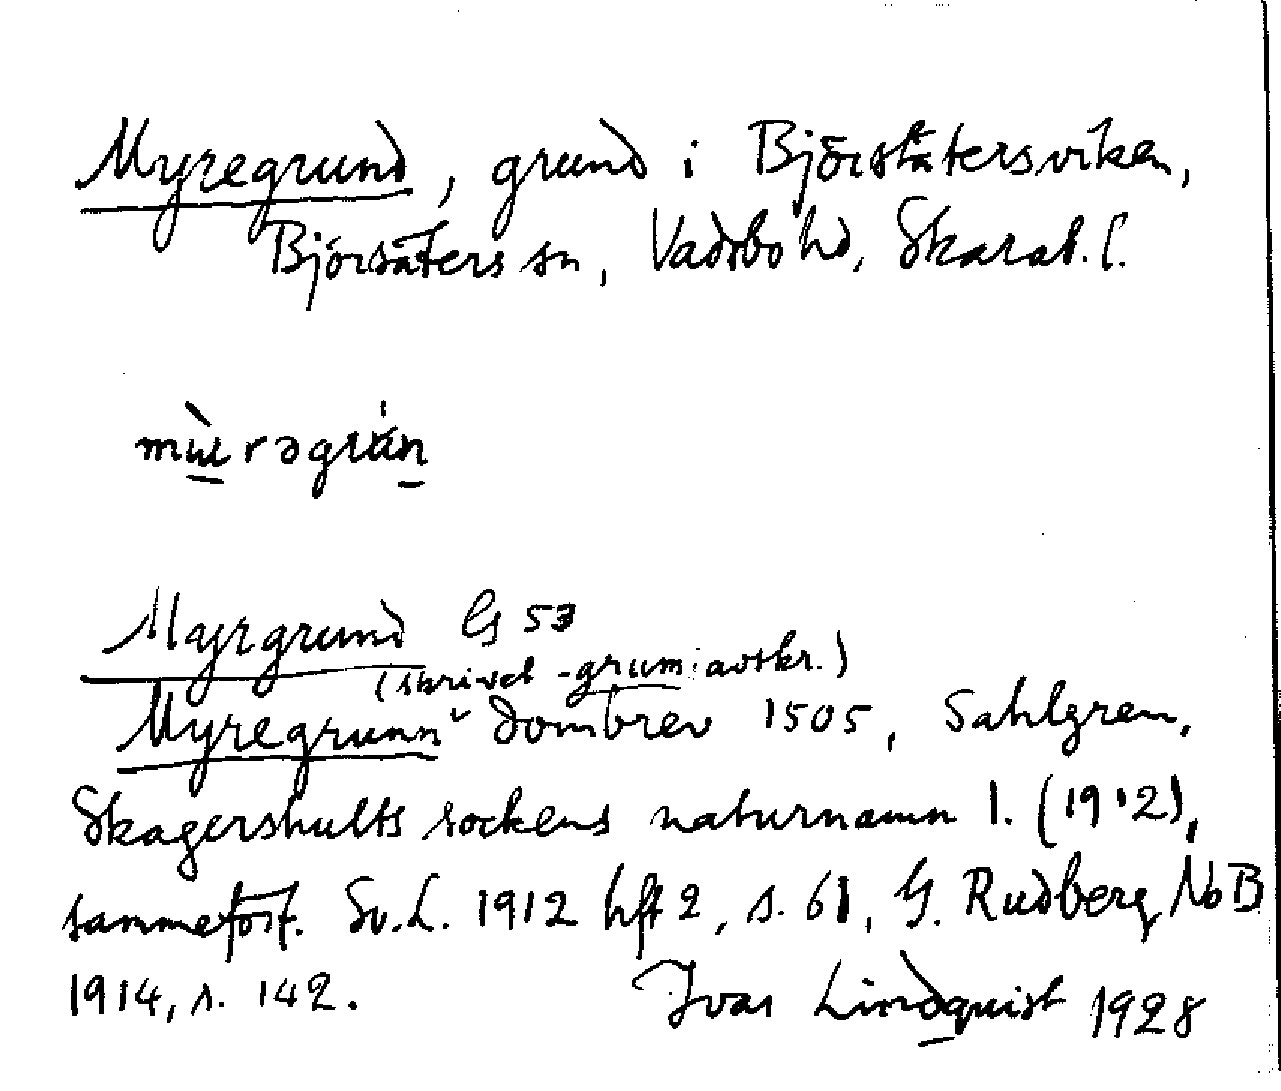 Myregrund, grund i Björsätersviken,
Björsäters sn, Vadsbo hd, Skarab. l.
Myrgrund GS 53
(skrivet -grum i avskr.)
Myregrunn dombrev 1505, Sahlgren,
Skagershults sockens naturnamn I. (1912),
samme förf. Sv.L. 1912 hft 2, s. 61, G. Rudberg NoB
1914, s. 142. Ivar Lindquist 1928